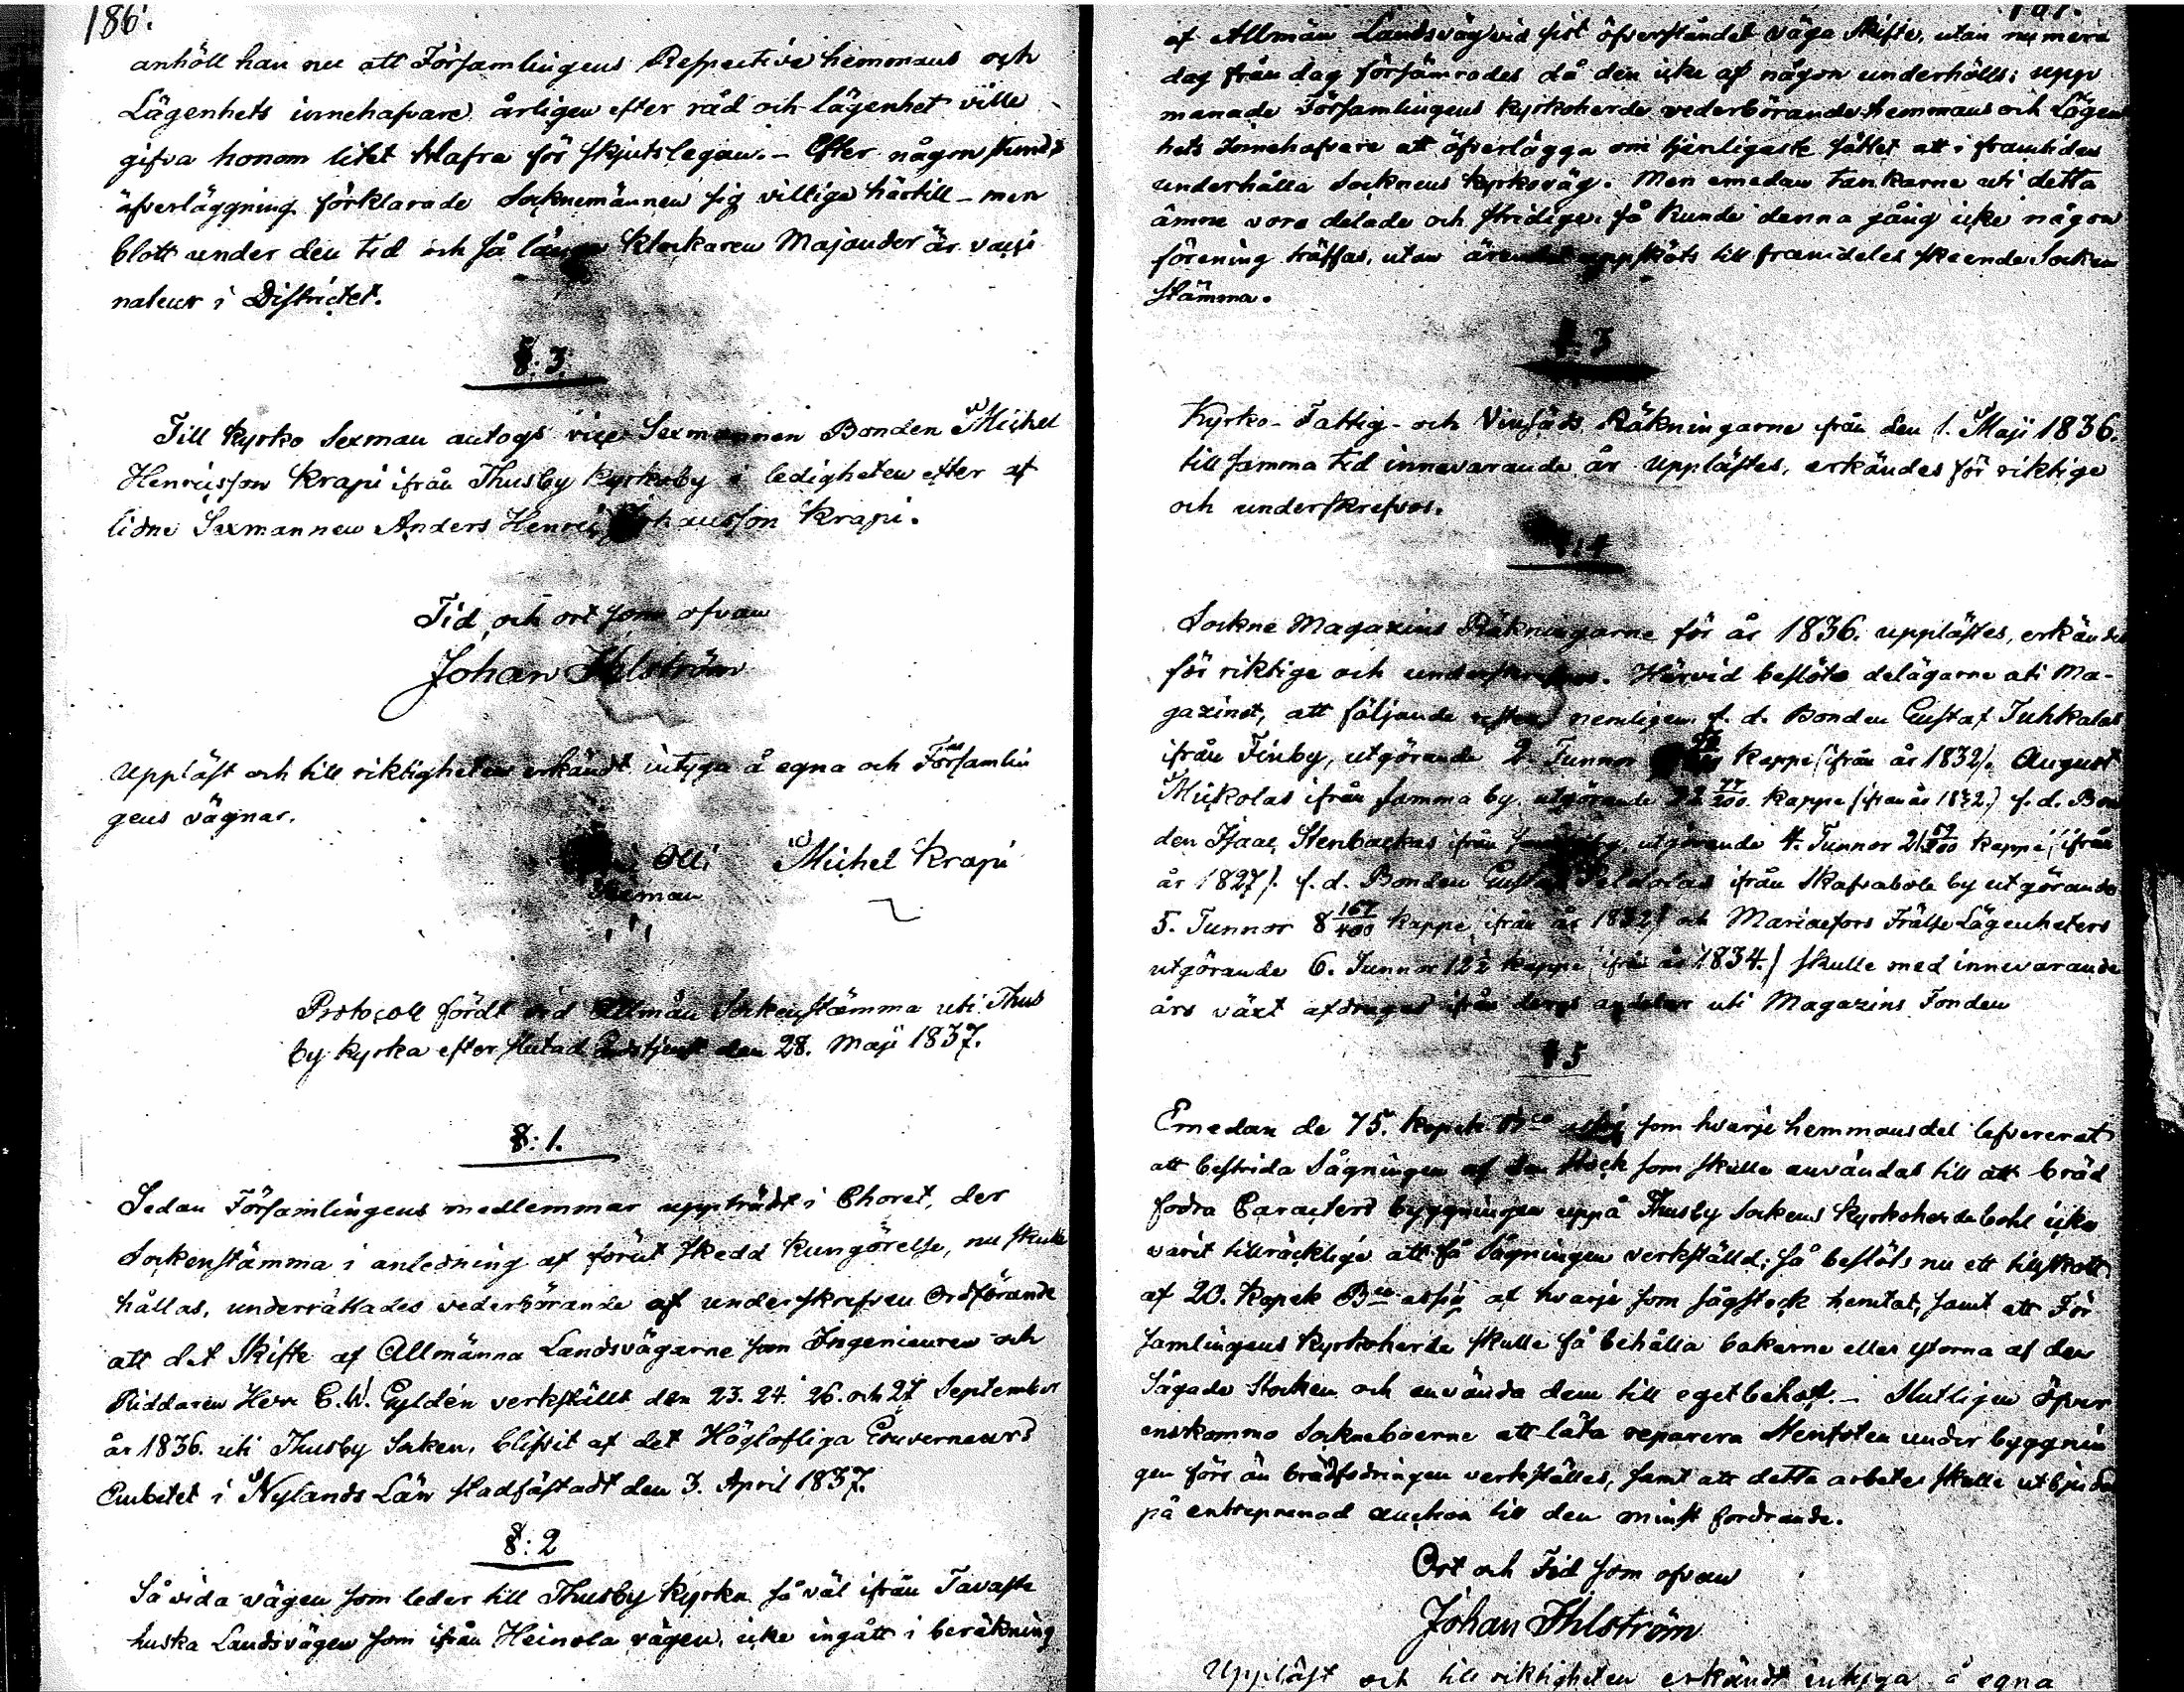 186.
anhöll han nu att Församlingens Respective hemmans och
Lägenhets innehafvare årligen efter råd och lägenhet ville
gifva honom litet Hafra för skjutslegan. - Efter någon stunds
öfverläggning förklarade Socknemännen sig villige härtill - men
blott under den tid och så länge Klockaren Majander är vacci
nateur i Districtet.
§: 3.
Till Kyrko Sexman antogs vice Sexmannen Bonden Michel
Henricsson Krapi ifrån Thusby Kyrkoby i ledigheten efter af
lidne Sexmannen Anders Henric Johansson Krapi.
Tid och ort som ofvan
Johan Ihlström
Uppläst och till riktigheten erkändt intyga å egna och Församlin
gens vägnar.
Olli Michel Krapi
Sexman
Protocoll fördt vid Allmän Sockenstämma uti Thus
by kyrka efter slutad Gudstjenst den 28. Maji 1837.
§: 1.
Sedan Församlingens medlemmar uppträdt i Choret, der
Sockenstämma i anledning af förut skedd Kungörelse, nu skulle
hållas, underrättades vederbörande af underskrefven Ordförande
att det Skifte af Allmänna Landsvägarne som Ingenieuren och
Riddaren Herr C.W. Gyldén verkställt den 23. 24. 26. och 27 September
år 1836. uti Thusby Socken, blifvit af det Höglofliga Gouverneurs
Embetet i Nylands Län stadfästadt den 3. April 1837.
§: 2
Så vida vägen som leder till Thusby Kyrka så väl ifrån Tavaste
huska Landsvägen som ifrån Heinola vägen, icke ingått i beräkning
187.
af Allmän Landsväg vid sist öfverståndet väga Skifte, utan numera
dag från dag försämrades då den icke af någon underhölls; upp
manade Församlingens Kyrkoherde vederbörande hemmans och Lägen
hets Innehafvare att öfverlägga om tjenligaste sättet att i framtiden
underhålla Socknens Kyrkoväg. Men emedan tankarne uti detta
ämne voro delade och stridige, så kunde denna gång icke någon
förening träffas, utan ärendet uppsköts till framdeles skeende Socken
stämma.
§: 3
Kyrko- Fattig- och Vinsäds Räkningarne från den 1. Maji 1836.
till samma tid innevarande år upplästes, erkändes för riktige
och underskrefvos.
§: 4
Sockne Magazins Räkningarne för år 1836. upplästes, erkändes
för riktige och underskrefvos. Härvid beslöto delägarne uti Ma-
gazinet, att följande rester nemligen f. d. Bonden Gustaf Juhkalas
ifrån Finby, utgörande 2. Tunnor kappe (ifrån år 1832). August
Mickolas ifrån samma by utgörande 22 77/200 kappe (ifrån år 1832.) f. d. Bon
den Isaac Stenbackas ifrån utgörande 4. Tunnor kappe, (ifrån
år 1827). f. d. Bonden Gustaf ifrån Skafvabole by utgörande
5. Tunnor 8 kappe ifrån år och Mariaefors Frälse Lägenheters
utgörande 6. Tunnor kappe, ifrån år 1834.) skulle med innevarande
års växt afdragas ifrån deras andelar uti Magazins Fonden
§ 5
Emedan de 75. Kopek Bco assig som hvarje hemmansdel lefvererat
att bestrida Sågningen af den Stock som skulle användas till att bräd
fodra Caracters byggningen uppå Thusby Sockens Kyrkoherdebohl icke
varit tillräcklige att få Sågningen verkställd; så beslöts nu ett tillskott
af 20. Kopek Bco assig af hvarje som sågstock hemtat, samt att För
samlingens Kyrkoherde skulle få behålla bakarne eller ytorna af den
Sågade Stocken och använda dem till eget behof. - Slutligen öfver
enskommo Sockneboerne att låta reparera Stenfoten under byggnin
gen förr än brädfodringen verkställes, samt att detta arbete skulle utbjudas
på entreprenad auction till den minst fordrande.
Ort och Tid som ofvan
Johan Ihlström
Uppläst och till riktigheten erkändt intyga å egna